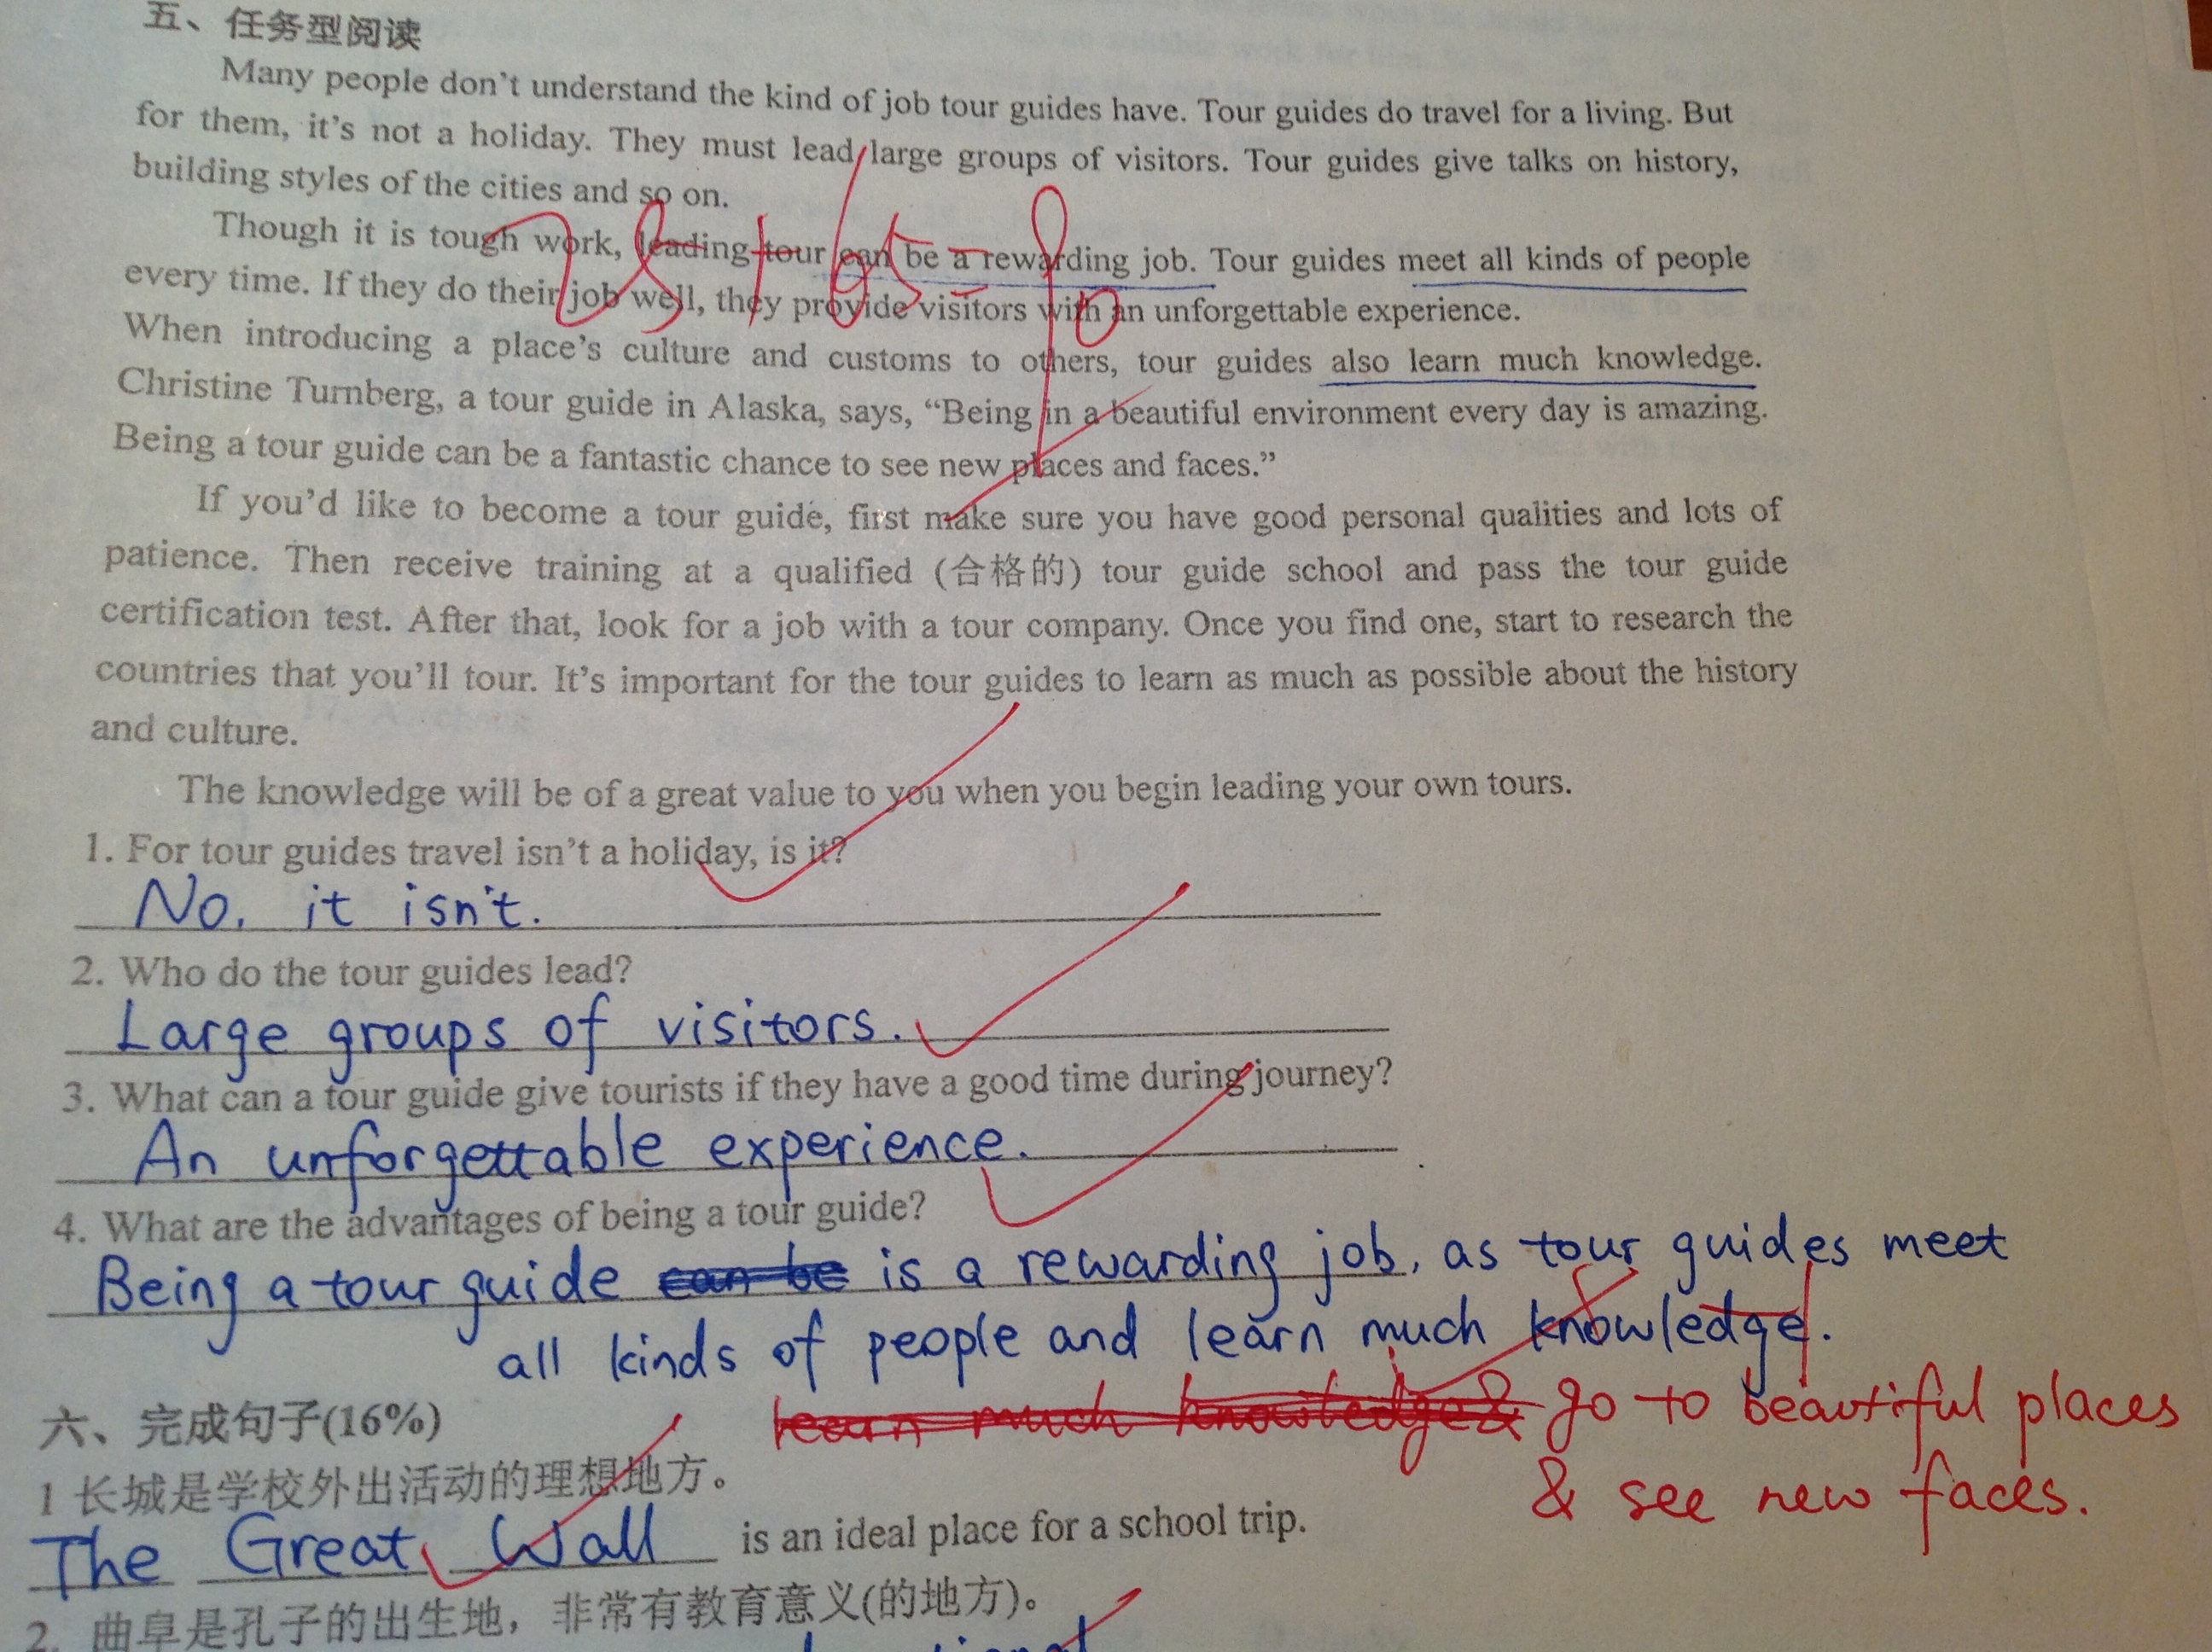 五、任务型阅读
Many people don't understand the kind of job tour guides have. Tour guides do travel for a living. But
for them, it's not a holiday. They must lead large groups of visitors. Tour guides give talks on history,
building styles of the cities and so on.
Though it is tough work, leading tour can be a rewarding job. Tour guides meet all kinds of people
every time. If they do their job well, they provide visitors with an unforgettable experience.
When introducing a place's culture and customs to others, tour guides also learn much knowledge.
Christine Turnberg, a tour guide in Alaska, says, “Being in a beautiful environment every day is amazing.
Being a tour guide can be a fantastic chance to see new places and faces.”
If you'd like to become a tour guide, first make sure you have good personal qualities and lots of
patience. Then receive training at a qualified (合格的) tour guide school and pass the tour guide
certification test. After that, look for a job with a tour company. Once you find one, start to research the
countries that you'll tour. It's important for the tour guides to learn as much as possible about the history
and culture.
The knowledge will be of a great value to you when you begin leading your own tours.
1. For tour guides travel isn't a holiday, is it?
No. it isn't.
2. Who do the tour guides lead?
Large groups of visitors.
3. What can a tour guide give tourists if they have a good time during journey?
An unforgettable experience.
4. What are the advantages of being a tour guide?
Being a tour guide can be is a rewarding job, as tour guides meet
all kinds of people and learn much knowledge.
learn much knowledge & go to beautiful places
& see new faces.
六、完成句子(16%)
1 长城是学校外出活动的理想地方。
The Great Wall is an ideal place for a school trip.
2. 曲阜是孔子的出生地，非常有教育意义(的地方)。